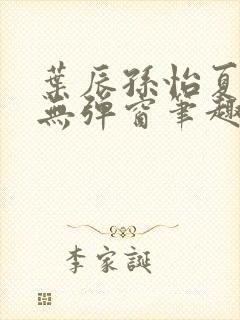 葉辰孫怡夏
無彈窗筆趣
李家誕